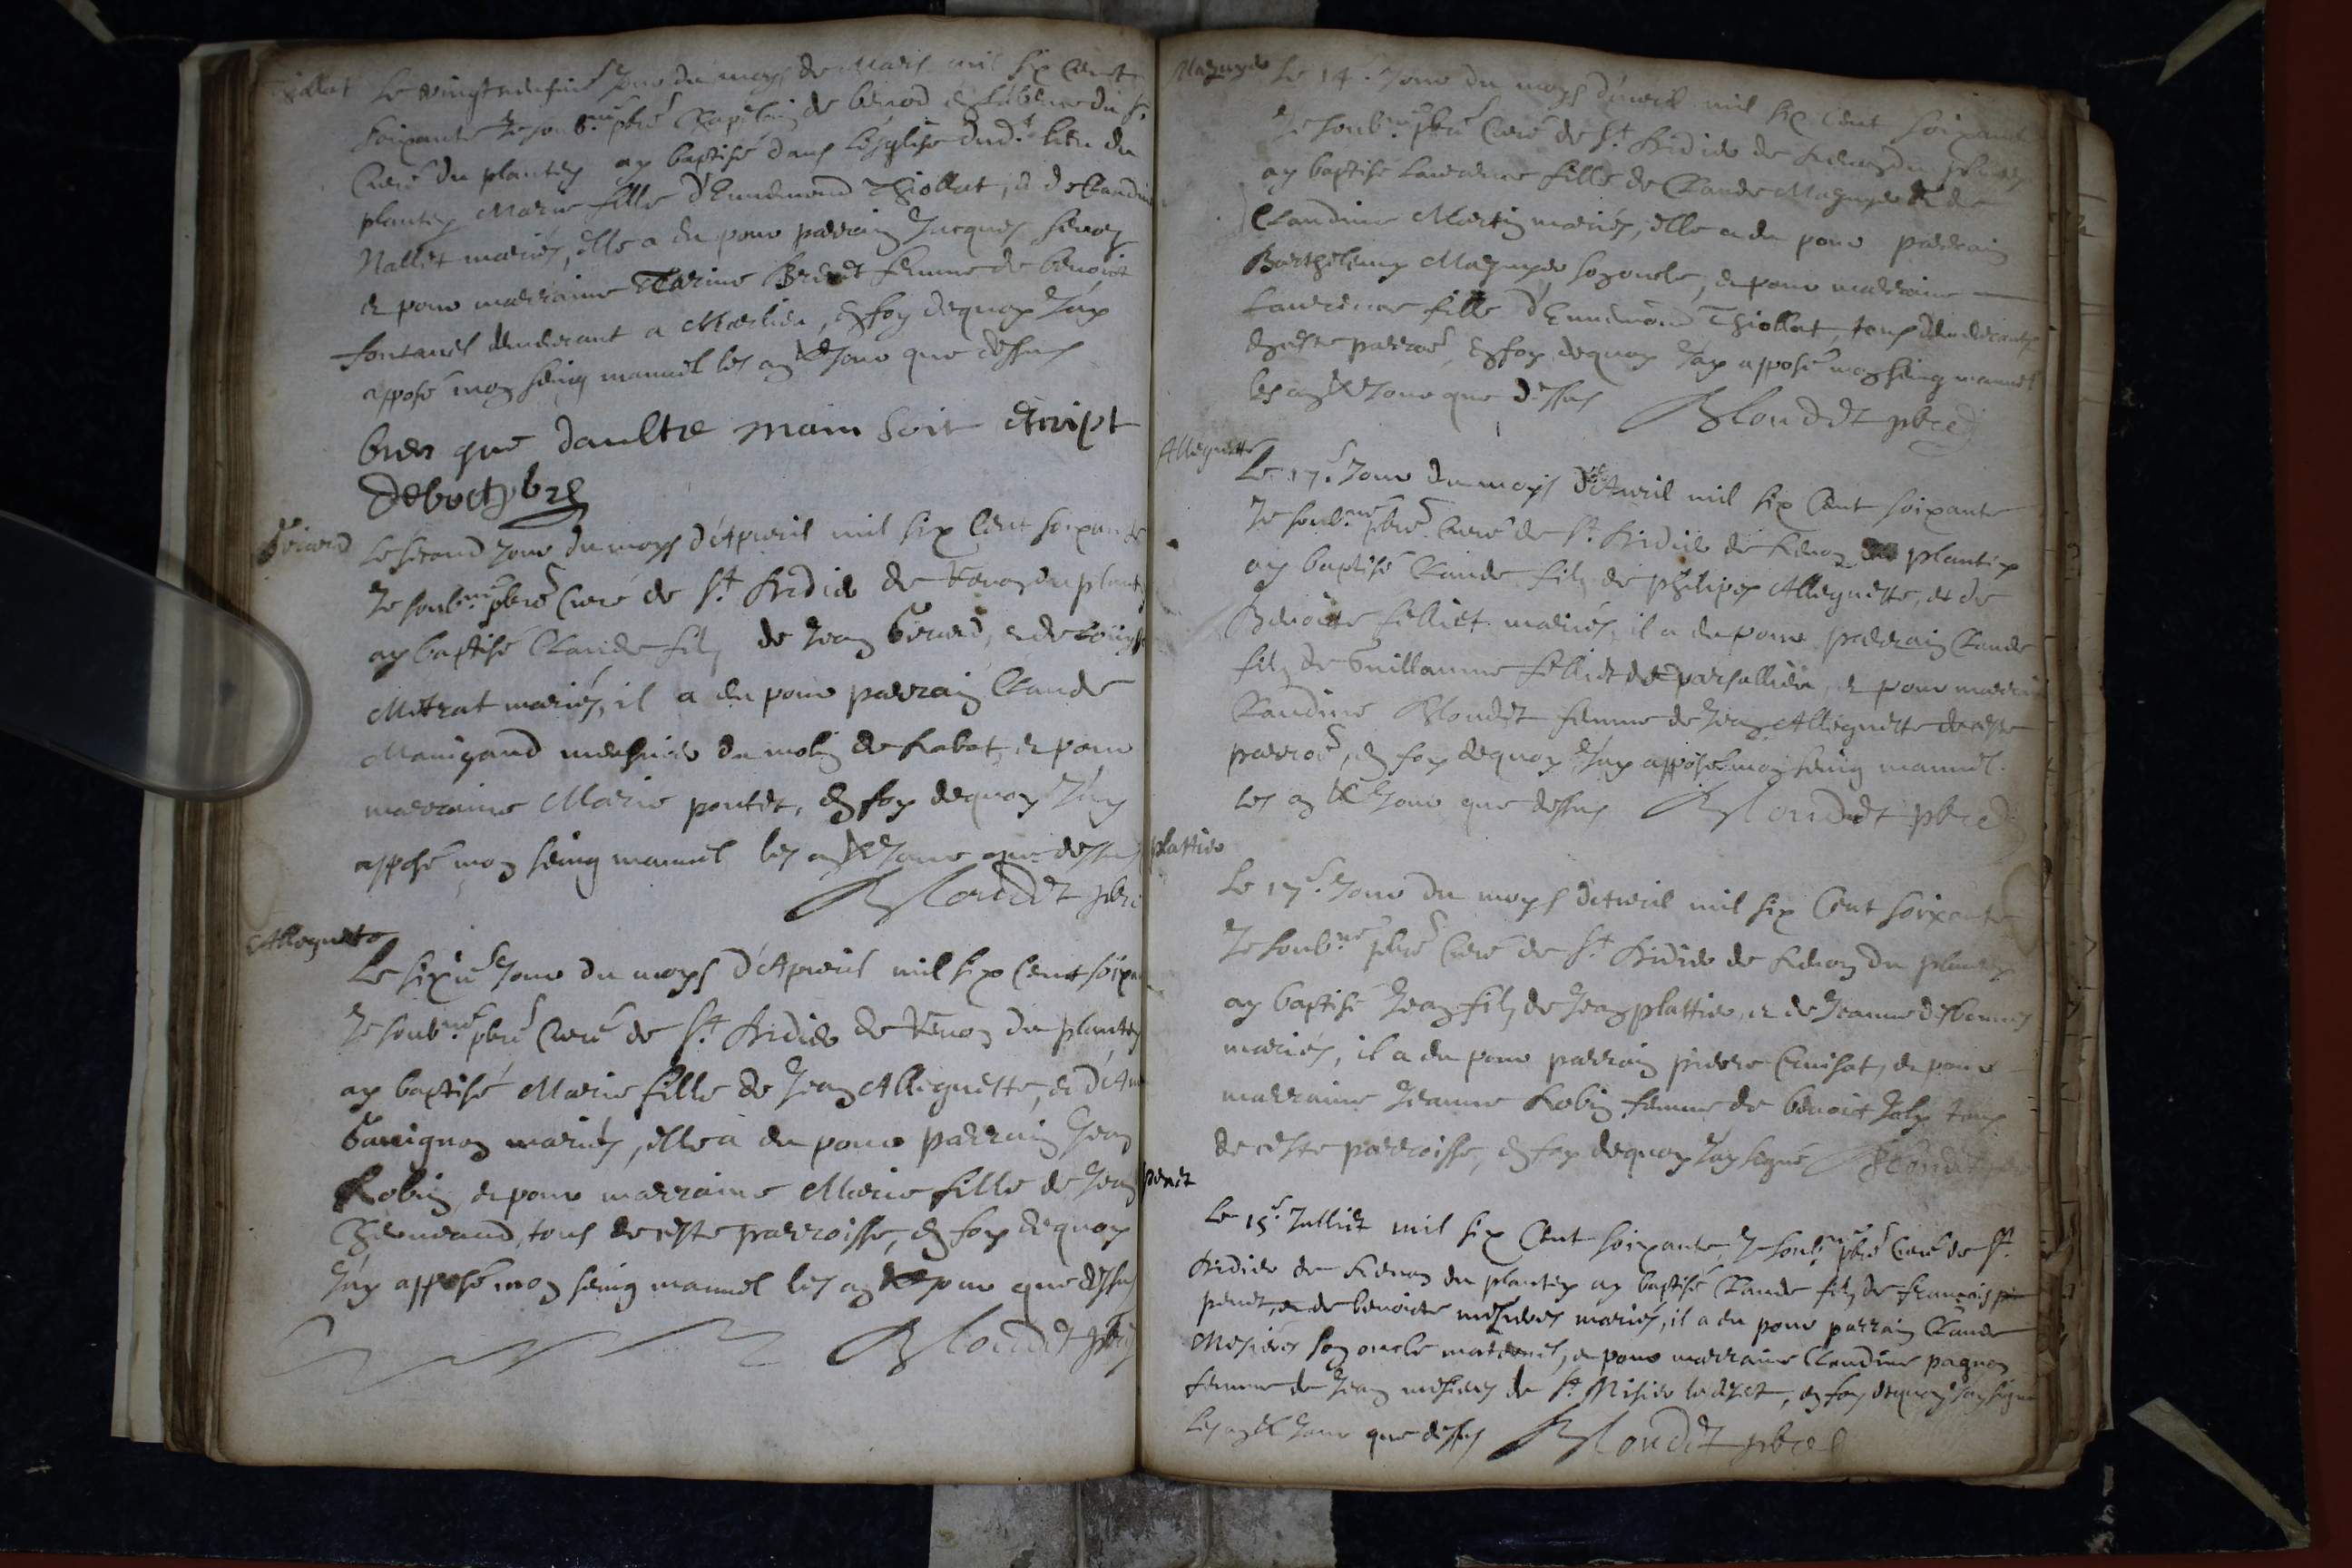 Thiollat
Le vingt neufie Jour du moys de Mars mil six Cent
soixante Je soubné pbre de benod en du sr
Curé du plantey ay baptisé dans l'esglise dudt lieu du
plantey Marie fille d'Ennemond Thiollat, et de Claudine
Nallet mariés, elle a eu pour parrain Jacques
et pour marraine femme de benoict
fontanel demeurant a Marlieu, en foy dequoy J'ay
apposé mon seing manuel les an et Jour que dessus
bien que daultre main soit escript

Gerard
Le second Jour du moys d'Apvril mil six Cent soixante
Je soubné pbre Curé de St Didier de Renon du plant
ay baptisé Claude filz de Jean Gerard, et de
Métrat mariés, il a eu pour parrain Claude
Manigand meusnier du molin de Rabat, et pour
marraine Marie poutet, en foy dequoy J'ay
apposé mon seing manuel les an et Jour que dessus
Blondet pbre
Alleynette
Le sixie Jour du moys d'Apvril mil six Cent soix
Je soubné pbre Curé de St Didier de Renon du plantey
ay baptisé Marie fille de Jean Allegnette, et d'An
Gavignon mariés, elle a eu pour parrain Jean
Robin, et pour marraine Marie fille de Jean
tous de ceste parroisse, en foy dequoy
J'ay apposé mon seing manuel les an et Jour que dessus
Blondet pbre
Magnyer
Le 14e Jour du moys d'avril mil six cent soixante
Je soubné pbre Curé de St Didier de Renon du plantey
ay baptisé Laurence fille de Claude Magnyer et de
Claudine Martin mariés, elle a eu pour parrain
Barthelemy Magnyer son oncle, et pour marraine
Laurence fille d'Ennemond Thiollat, tous demeurants
en ceste parroe, en foy dequoy J'ay apposé mon seing manuel
les an et Jour que dessus Blondet pbre
Allegnette
Le 17e Jour du moys d'Avril mil six Cent soixante
Je soubné pbre Curé de St Didier de Renon du plantey
ay baptisé Claude filz de philipes Allegnette, et de
Benoitte felliet mariés, il a eu pour parrain Claude
filz de Guillaume felliet de et pour marraine
Claudine Blondet femme de Jean Allegnette de ceste
parroe, en foy dequoy J'ay apposé mon seing manuel
les an et Jour que dessus Blondet pbre
plattier
Le 17e Jour du moys d'Avril mil six Cent soixante
Je soubné pbre Curé de St Didier de Renon du plantey
ay baptisé Jean filz de Jean plattier, et de Jeanne desbonnes
mariés, il a eu pour parrain pierre et pour
marraine Jeanne Robin femme de benoict Joly tous
de ceste parroisse, en foy dequoy J'ay signé Blondet pbre
penet
Le 15e Julliet mil six Cent soixante, Je soubné pbre Curé de St
Didier de Renon du plantey ay baptisé Claude filz de françois
penet, et de benoicte mesieres mariés, il a eu pour parrain Claude
Mesieres son oncle maternel, et pour marraine Claudine pagnon
femme de Jean mesieres de St Nisier le desert, en foy dequoy J'ay signé
les an et Jour que dessus Blondet pbre